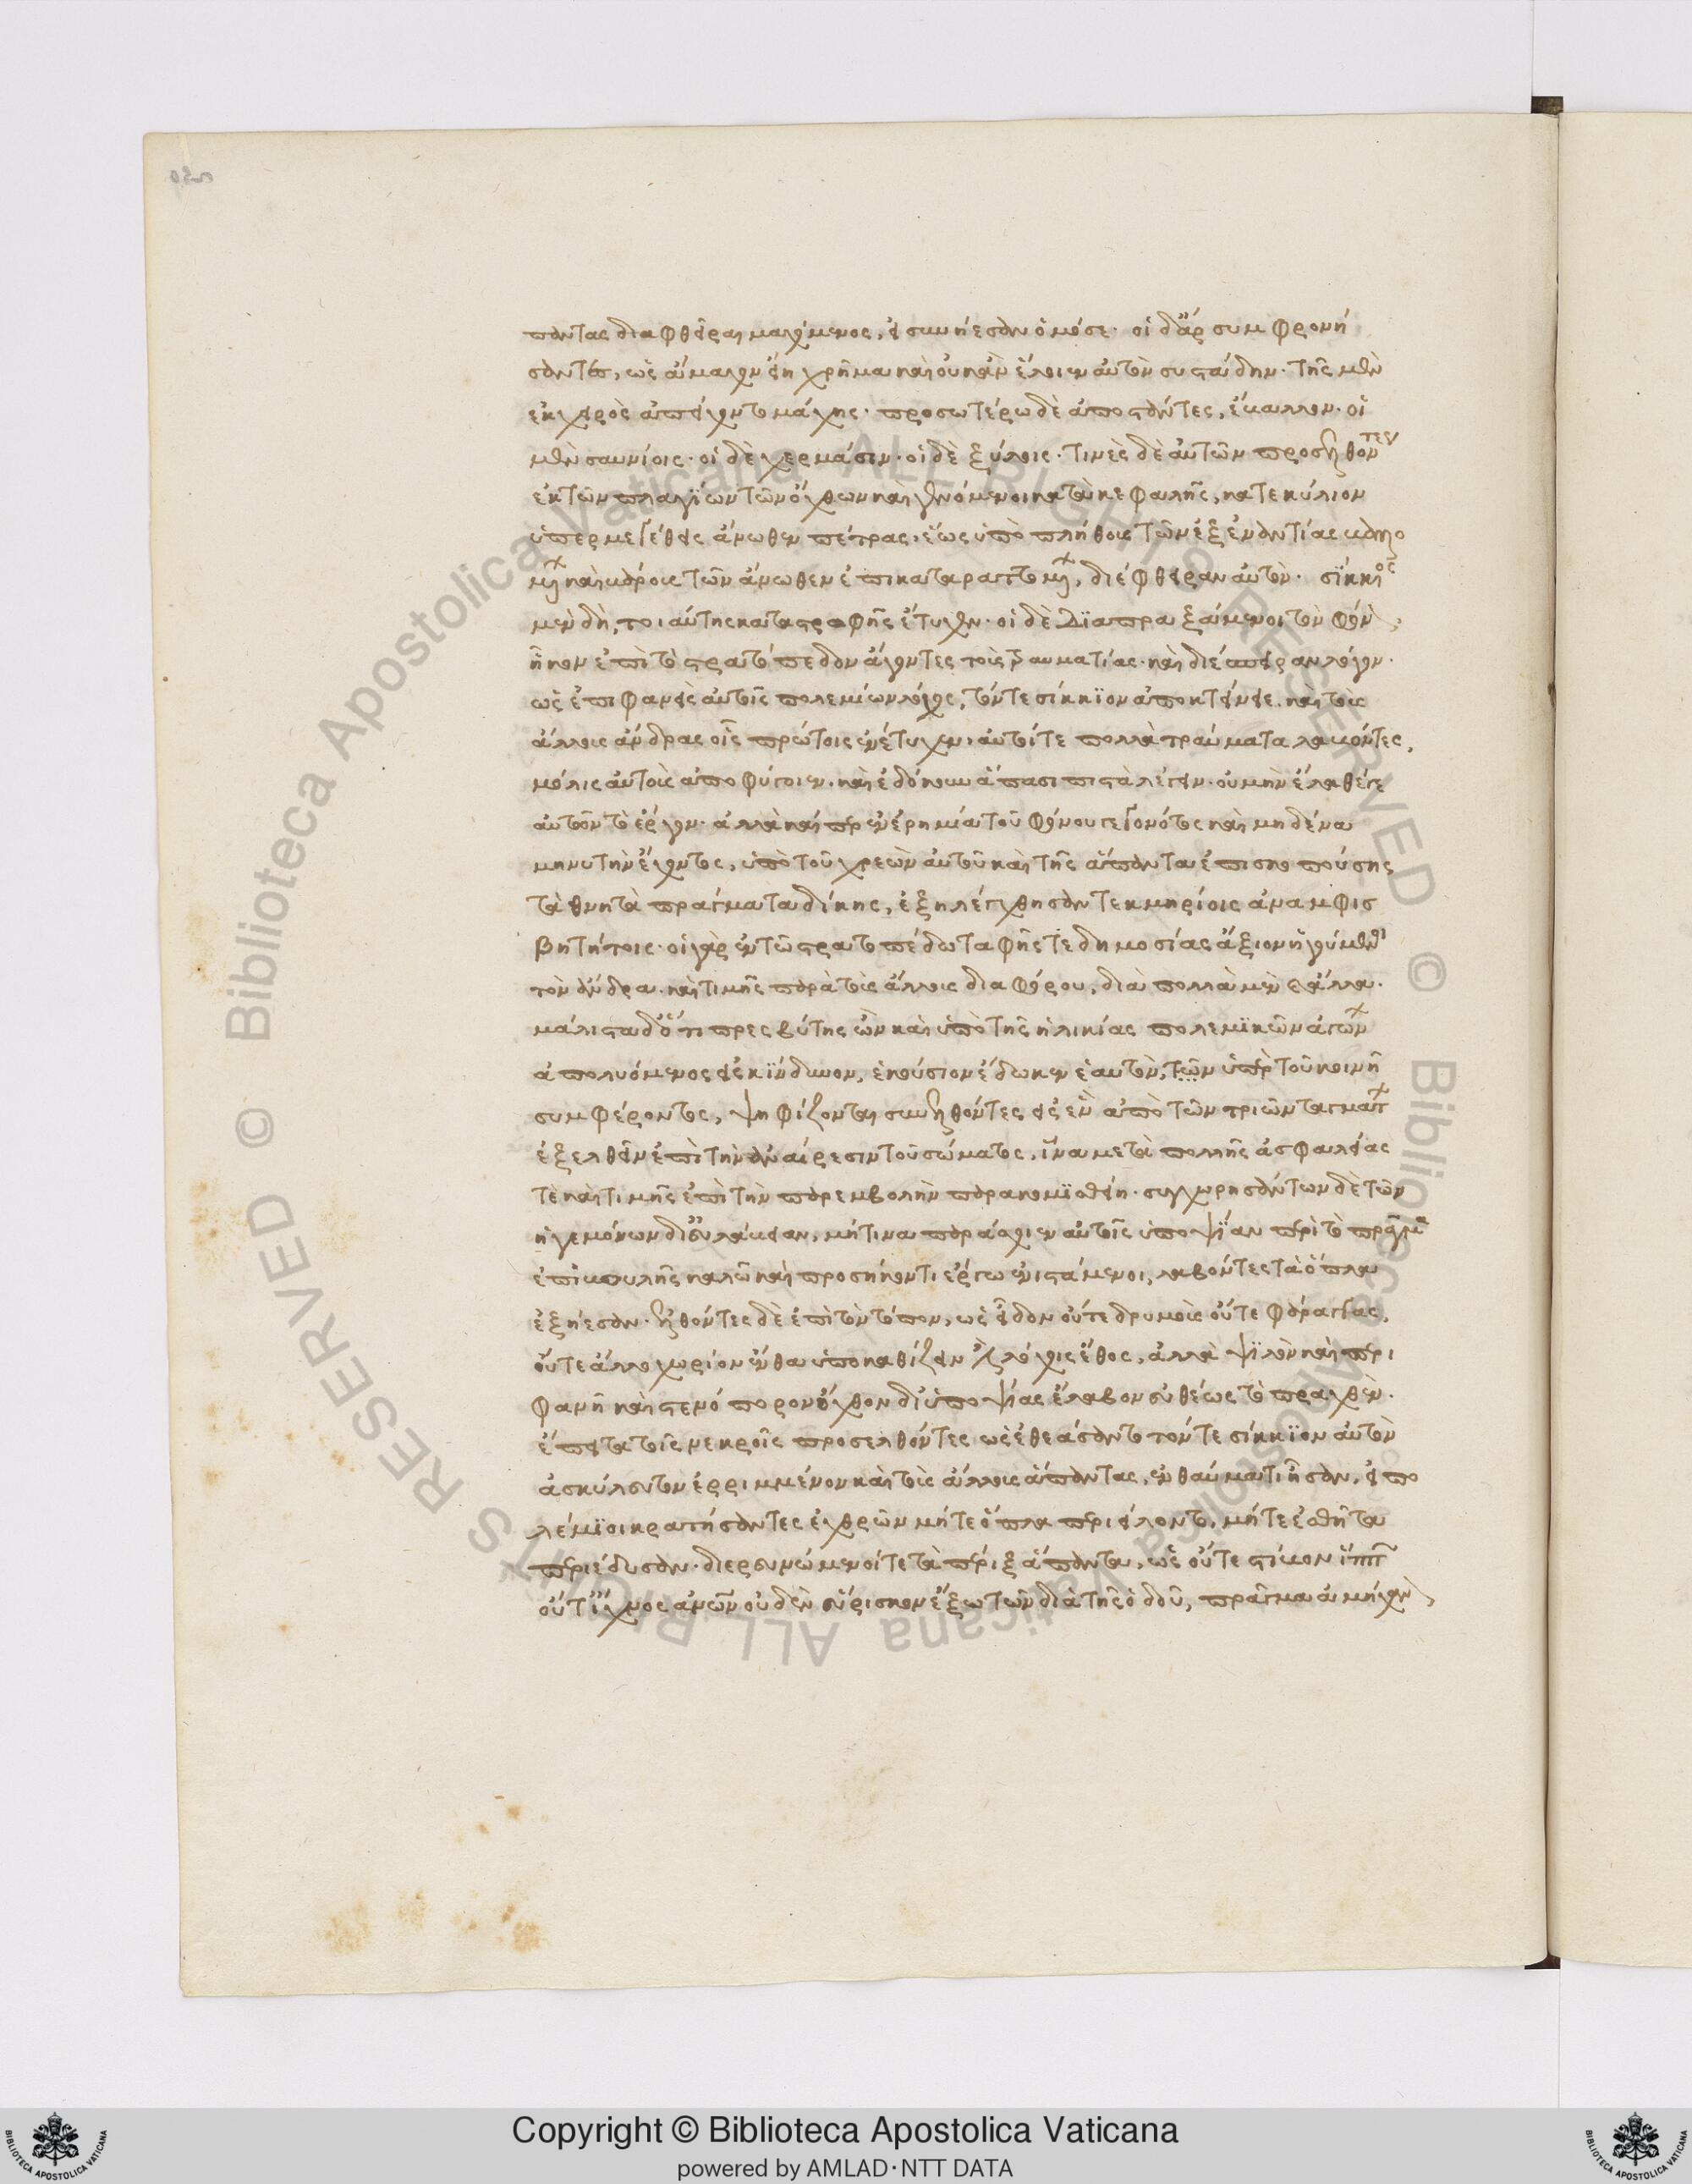 πάντας διαφθεῖραι μαχόμενος, εἰ συνῄεσαν ὁμόσε. οἱ δ' ἄρ συμφρονή
σαντες, ὡς ἄμαχον εἴη χρῆμα καὶ οὐκ ἂν ἕλοιεν αὐτὸν συστάδην. τῆς μὲν
ἐκ χειρὸς ἀπείχοντο μάχης. προσωτέρω δὲ ἀποστάντες, ἔβαλλον. οἱ
μὲν σαυνίοις. οἱ δὲ χερμάσιν. οἱ δὲ ξύλοις. τινὲς δὲ αὐτῶν προσελθόντες
ἐκ τῶν πλαγίων τῶν ὄχθων καὶ γενόμενοι κατὰ κεφαλῆς, κατεκύλιον
ὑπερμεγέθεις ἄνωθεν πέτρας. ἕως ὑπὸ πλήθους τῶν ἐξ ἐναντίας βαλλο
μένων καὶ βάρους τῶν ἄνωθεν ἐπικαταραττομένων, διέφθειραν αὐτόν. σίκκιος
μὲν δὴ, τοιαύτης καταστροφῆς ἔτυχεν. οἱ δὲ διαπραξάμενοι τὸν φόνον,
ἧκον ἐπὶ τὸ στρατόπεδον ἄγοντες τοὺς τραυματίας. καὶ διέσπειραν λόγον.
ὡς ἐπιφανεὶς αὐτοῖς πολεμίων λόχος, τόν τε σίκκιον ἀποκτείνειε. καὶ τοὺς
ἄλλους ἄνδρας οἷς πρώτοις ἐνέτυχεν. αὐτοί τε πολλὰ τραύματα λαβόντες,
μόλις αὐτοὺς ἀποφύγοιεν. καὶ ἐδόκουν ἅπασι πιστὰ λέγειν. οὐ μὴν ἔλαθέ γε
αὐτῶν τὸ ἔργον. ἀλλὰ καί περ ἐν ἐρημία τοῦ φόνου γεγονότος καὶ μηδένα
μηνυτὴν ἔχοντος, ὑπὸ τοῦ χρεὼν αὐτοῦ καὶ τῆς ἅπαντα ἐπισκοπούσης
τὰ θνητὰ πράγματα δίκης, ἐξηλέγχθησαν τεκμηρίοις ἀναμφισ
βητήτοις. οἱ γὰρ ἐν τῶ στρατοπέδω ταφῆς τε δημοσίας ἄξιον ἡγούμενοι
τὸν ἄνδρα. καὶ τιμῆς παρὰ τοὺς ἄλλους διαφόρου, διὰ πολλὰ μὲν καὶ ἄλλα.
μάλιστα δ' ὅτι πρεσβύτης ὢν καὶ ὑπὸ τῆς ἡλικίας πολεμικῶν ἀγώνων
ἀπολυόμενος εἰς κίνδυνον, ἑκούσιον ἔδωκεν ἑαυτὸν, τῶν ὑπὲρ τοῦ κοινῆ
συμφέροντος, ψηφίζονται συνελθόντες εἰς ἓν ἀπὸ τῶν τριῶν ταγμάτων
ἐξελθεῖν ἐπὶ τὴν ἀναίρεσιν τοῦ σώματος. ἵνα μετὰ πολλῆς ἀσφαλείας
τὲ καὶ τιμῆς ἐπὶ τὴν παρεμβολὴν παρακομϊσθείη. συγχωρησάντων δὲ τῶν
ἡγεμόνων δι' εὐλάβειαν, μή τινα παράσχοιεν αὐτοῖς ὑποψίαν περὶ τὸ πρᾶγμα
ἐπιβουλῆς καλῶ καὶ προσήκοντι ἔργω ἐνιστάμενοι, λαβόντες τὰ ὅπλα
ἐξῄεσαν. ἐλθόντες δὲ ἐπὶ τὸν τόπον, ὡς εἶδον οὔτε δρυμοὺς οὔτε φάραγγας,
οὔτε ἄλλο χωρίον ἔνθα ὑποκαθίζειν ἐστὶ λόχοις ἔθος, ἀλλὰ ψιλὸν καὶ περι
φανῆ καὶ στενόπορον ὄχθον δι' ὑποψίας ἔλαβον εὐθέως τὸ πραχθὲν.
ἔπειτα τοῖς νεκροῖς προσελθόντες ὡς ἐθεάσαντο τόν τε σίκκιον αὐτὸν
ἀσκύλευτον ἐρριμμένον καὶ τοὺς ἄλλους ἅπαντας, ἐν θαύματι ἦσαν, εἰ πο
λέμιοι κρατήσαντες ἐχθρῶν μήτε ὅπλα περιείλοντο, μήτε ἐσθῆτα
περιέδυσαν. διερευνώμενοί τε τὰ πέριξ ἅπαντα, ὡς οὔτε στίβον ἵππων
οὔτ' ἴχνος ἀνθρώπων οὐδὲν εὕρισκον ἔξω τῶν διὰ τῆς ὁδοῦ, πρᾶγμα ἀμήχανον